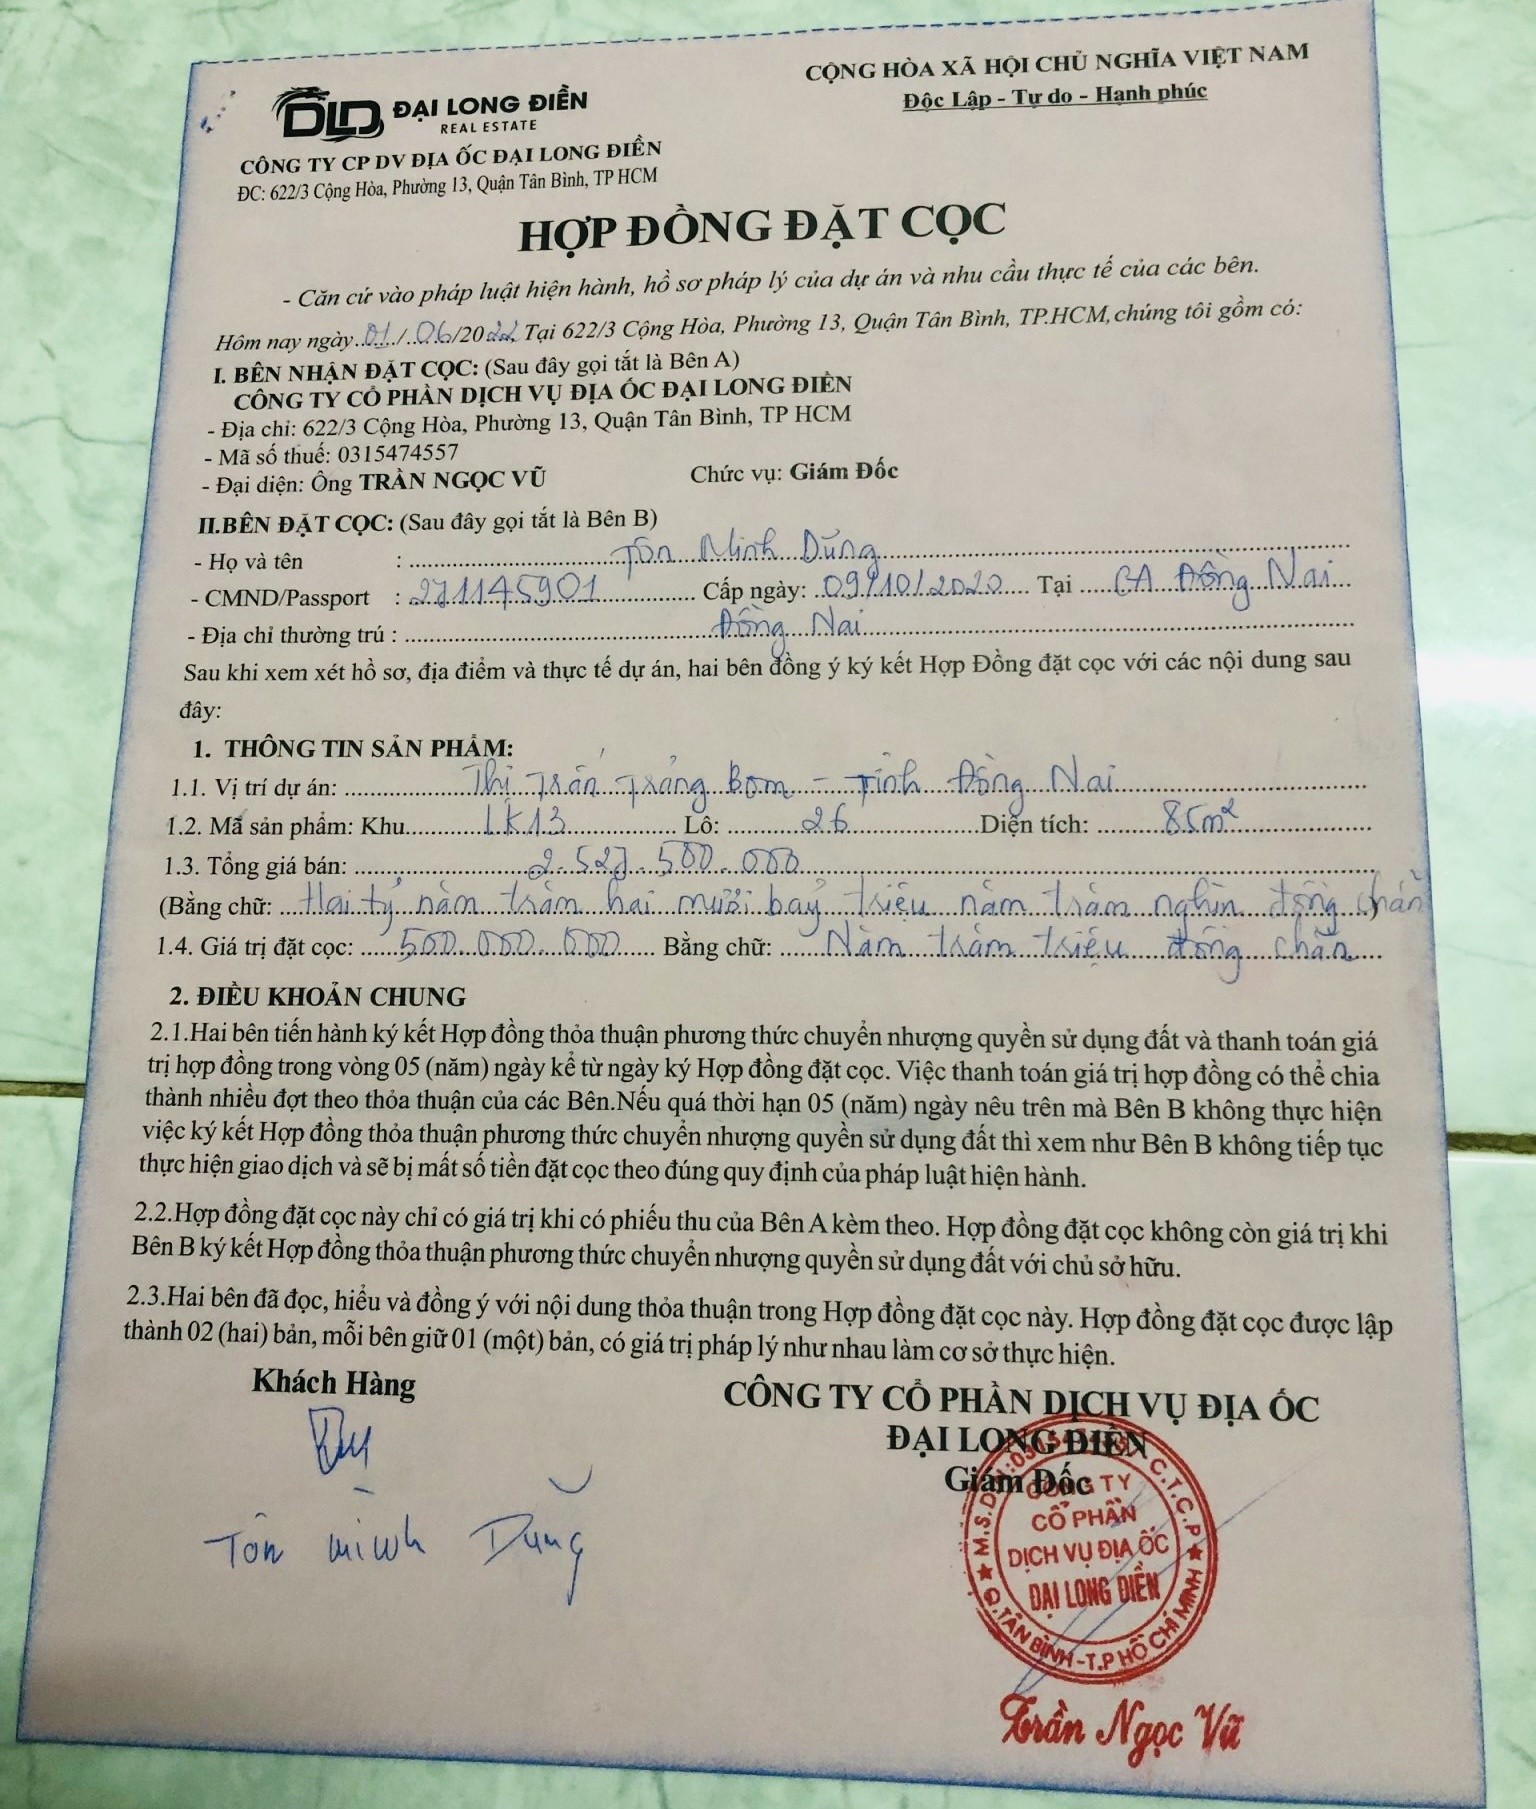 CỘNG HÒA XÃ HỘI CHỦ NGHĨA VIỆT NAM
Độc Lập - Tự do - Hạnh phúc
DLD ĐẠI LONG ĐIỀN
REAL ESTATE
CÔNG TY CP DV ĐỊA ỐC ĐẠI LONG ĐIỀN
ĐC: 622/3 Cộng Hòa, Phường 13, Quận Tân Bình, TP HCM
HỢP ĐỒNG ĐẶT CỌC
- Căn cứ vào pháp luật hiện hành, hồ sơ pháp lý của dự án và nhu cầu thực tế của các bên.
Hôm nay ngày 01/06/2022 Tại 622/3 Cộng Hòa, Phường 13, Quận Tân Bình, TP.HCM, chúng tôi gồm có:
I. BÊN NHẬN ĐẶT CỌC: (Sau đây gọi tắt là Bên A)
CÔNG TY CỔ PHẦN DỊCH VỤ ĐỊA ỐC ĐẠI LONG ĐIỀN
- Địa chỉ: 622/3 Cộng Hòa, Phường 13, Quận Tân Bình, TP HCM
- Mã số thuế: 0315474557
- Đại diện: Ông TRẦN NGỌC VŨ Chức vụ: Giám Đốc
II.BÊN ĐẶT CỌC: (Sau đây gọi tắt là Bên B)
- Họ và tên : Tôn Minh Dũng
- CMND/Passport : 271145901 Cấp ngày: 09/10/2020 Tại CA Đồng Nai
- Địa chỉ thường trú : Đồng Nai
Sau khi xem xét hồ sơ, địa điểm và thực tế dự án, hai bên đồng ý ký kết Hợp Đồng đặt cọc với các nội dung sau
đây:
1. THÔNG TIN SẢN PHẨM:
1.1. Vị trí dự án: Thị Trấn Trảng Bom - Tỉnh Đồng Nai
1.2. Mã sản phẩm: Khu LK13 Lô: 26 Diện tích: 85m²
1.3. Tổng giá bán: 2.527.500.000
(Bằng chữ: Hai tỷ năm trăm hai mươi bảy triệu năm trăm nghìn đồng chẵn)
1.4. Giá trị đặt cọc: 500.000.000 Bằng chữ: Năm trăm triệu đồng chẵn
2. ĐIỀU KHOẢN CHUNG
2.1.Hai bên tiến hành ký kết Hợp đồng thỏa thuận phương thức chuyển nhượng quyền sử dụng đất và thanh toán giá
trị hợp đồng trong vòng 05 (năm) ngày kể từ ngày ký Hợp đồng đặt cọc. Việc thanh toán giá trị hợp đồng có thể chia
thành nhiều đợt theo thỏa thuận của các Bên.Nếu quá thời hạn 05 (năm) ngày nêu trên mà Bên B không thực hiện
việc ký kết Hợp đồng thỏa thuận phương thức chuyển nhượng quyền sử dụng đất thì xem như Bên B không tiếp tục
thực hiện giao dịch và sẽ bị mất số tiền đặt cọc theo đúng quy định của pháp luật hiện hành.
2.2.Hợp đồng đặt cọc này chỉ có giá trị khi có phiếu thu của Bên A kèm theo. Hợp đồng đặt cọc không còn giá trị khi
Bên B ký kết Hợp đồng thỏa thuận phương thức chuyển nhượng quyền sử dụng đất với chủ sở hữu.
2.3.Hai bên đã đọc, hiểu và đồng ý với nội dung thỏa thuận trong Hợp đồng đặt cọc này. Hợp đồng đặt cọc được lập
thành 02 (hai) bản, mỗi bên giữ 01 (một) bản, có giá trị pháp lý như nhau làm cơ sở thực hiện.
Khách Hàng
Tôn minh Dũng
CÔNG TY CỔ PHẦN DỊCH VỤ ĐỊA ỐC
ĐẠI LONG ĐIỀN
Giám Đốc
M.S.D.N: C.T.C.P
CÔNG TY
CỔ PHẦN
DỊCH VỤ ĐỊA ỐC
ĐẠI LONG ĐIỀN
Q.TÂN BÌNH-T.P HỒ CHÍ MINH
Trần Ngọc Vũ